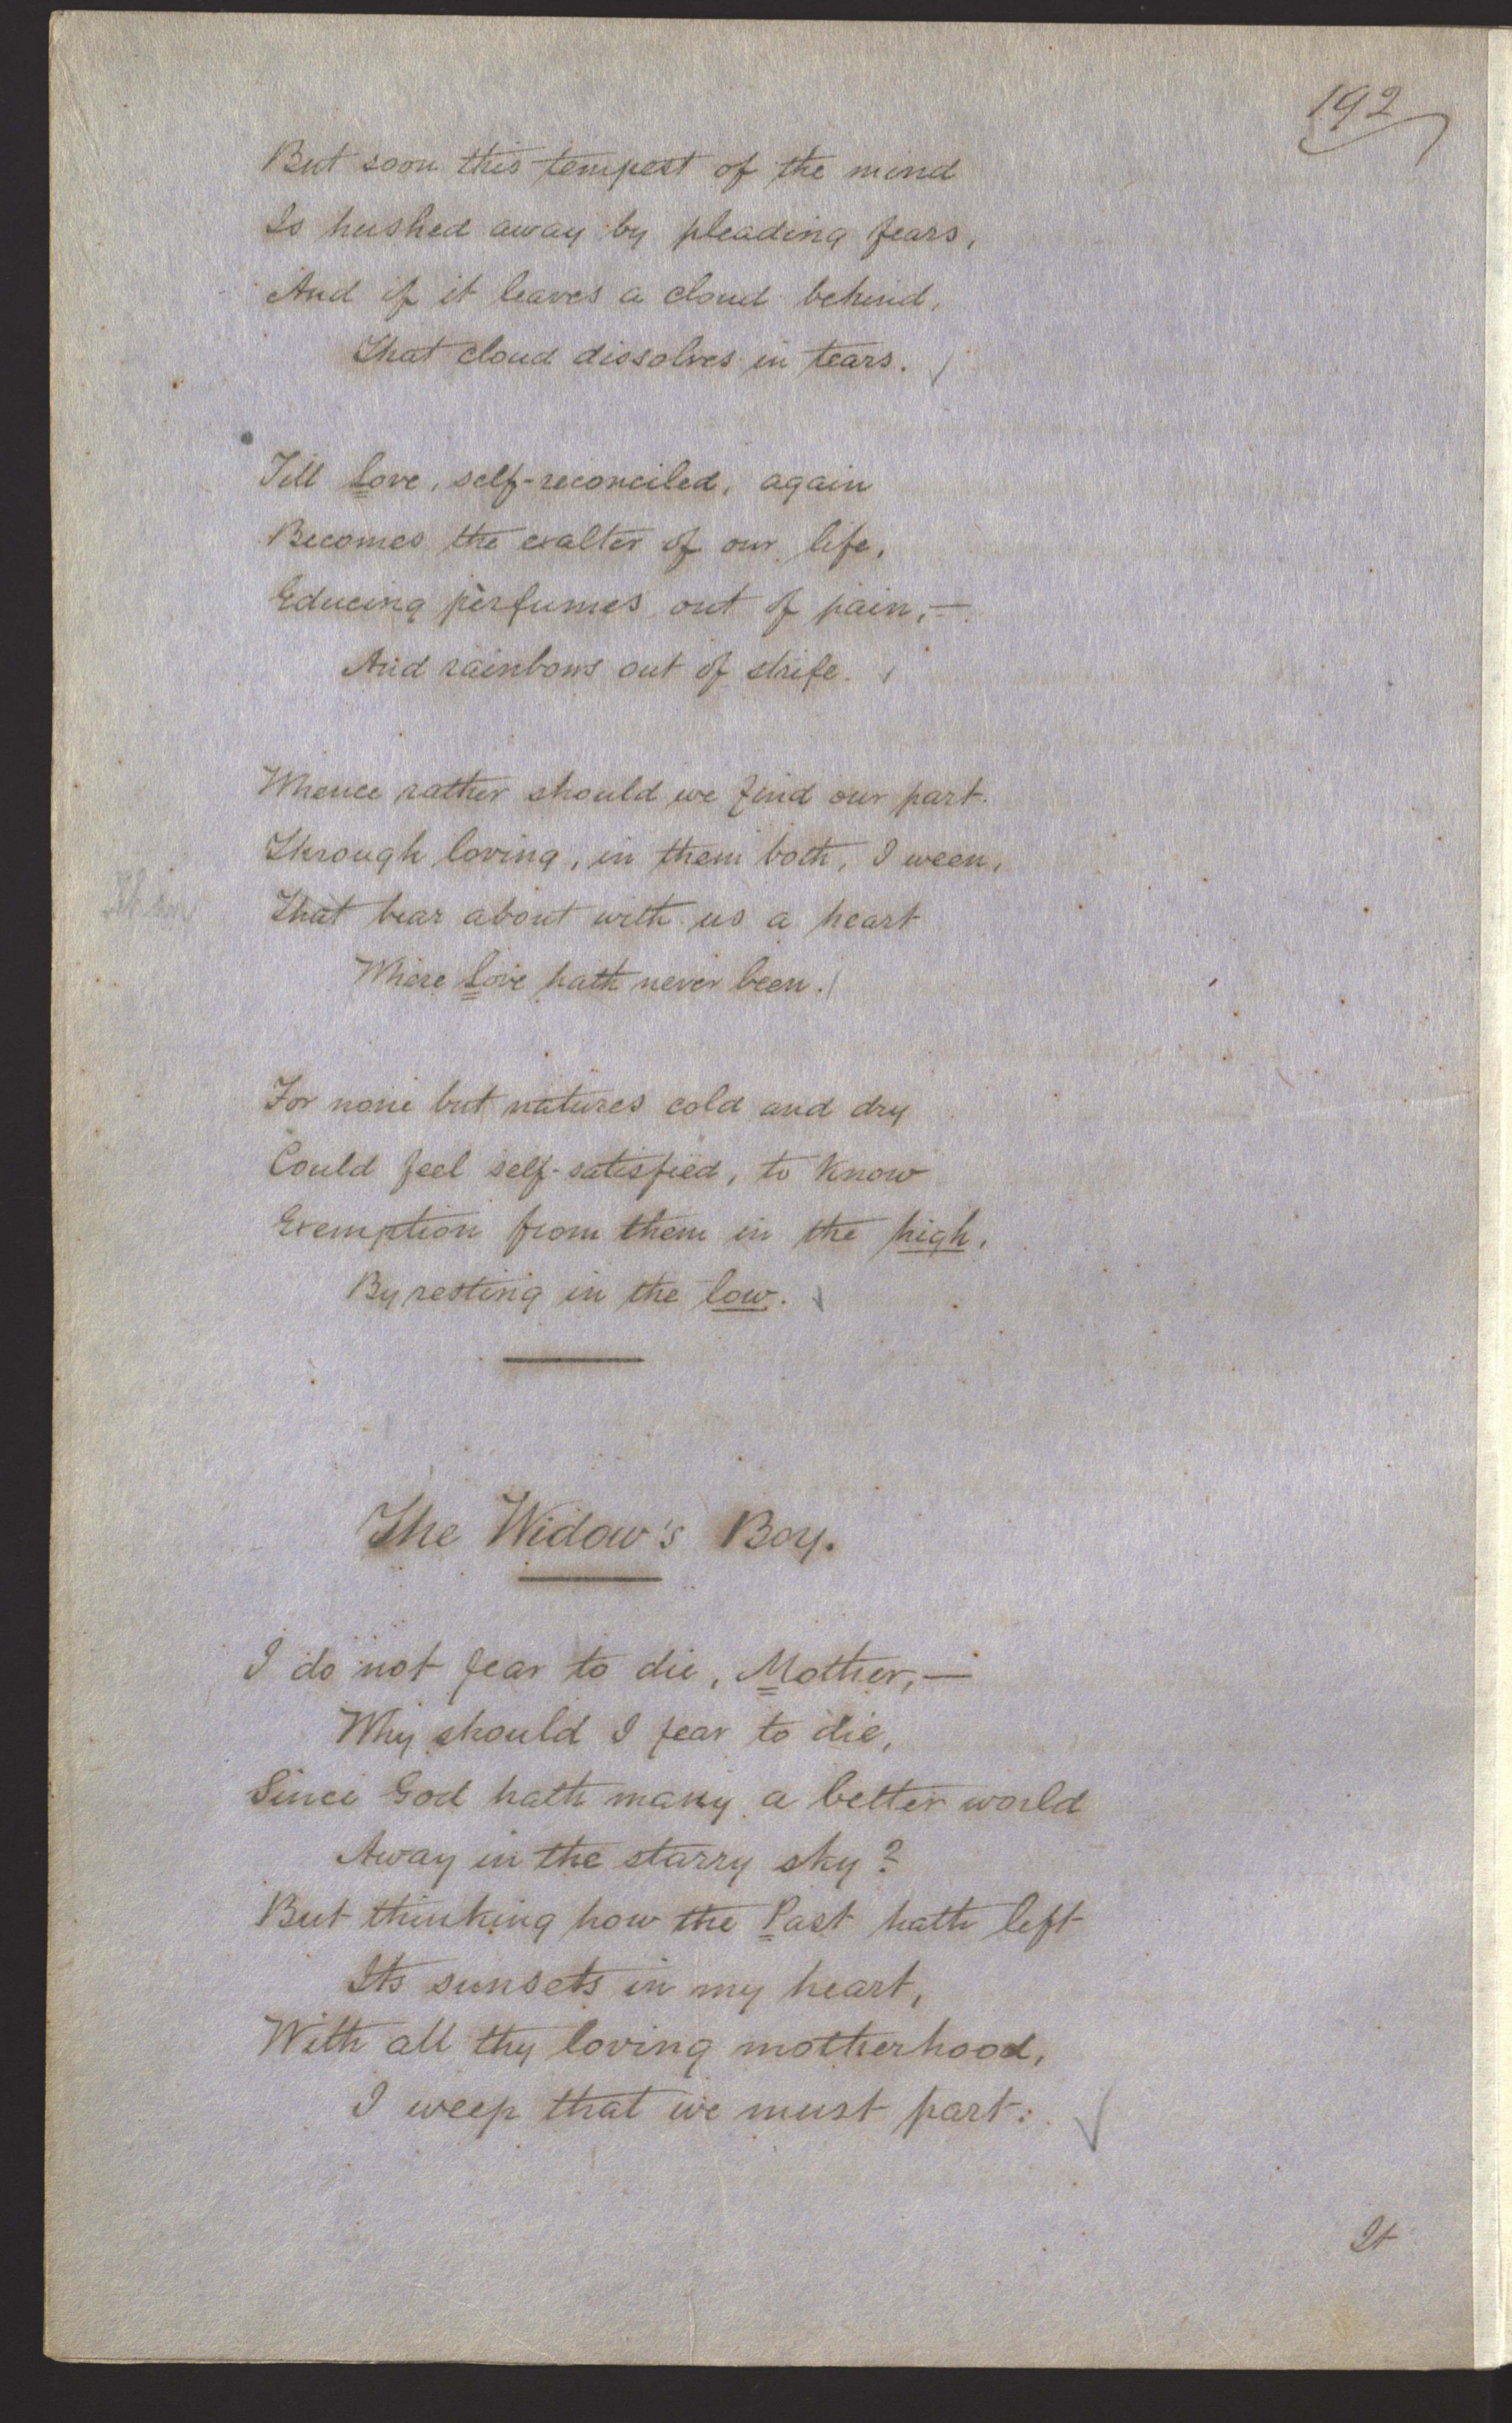 192
But soon this tempest of the mind
Is hushed away by pleading fears,
And if it leaves a cloud behind,
That cloud dissolves in tears.
Till Love, self-reconciled, again
Becomes the exalter of our life,
Educing perfumes out of pain,—
And rainbows out of strife.
Whence rather should we find our part
Through loving, in them both, I ween,
That bear about with us a heart
Where Love hath never been.
For none but natures cold and dry
Could feel self-satisfied, to know
Exemption from them in the high,
By resting in the low.
The Widow's Boy.
I do not fear to die, Mother,—
Why should I fear to die,
Since God hath many a better world
Away in the starry sky?
But thinking how the Past hath left
Its sunsets in my heart,
With all thy loving motherhood,
I weep that we must part:
It